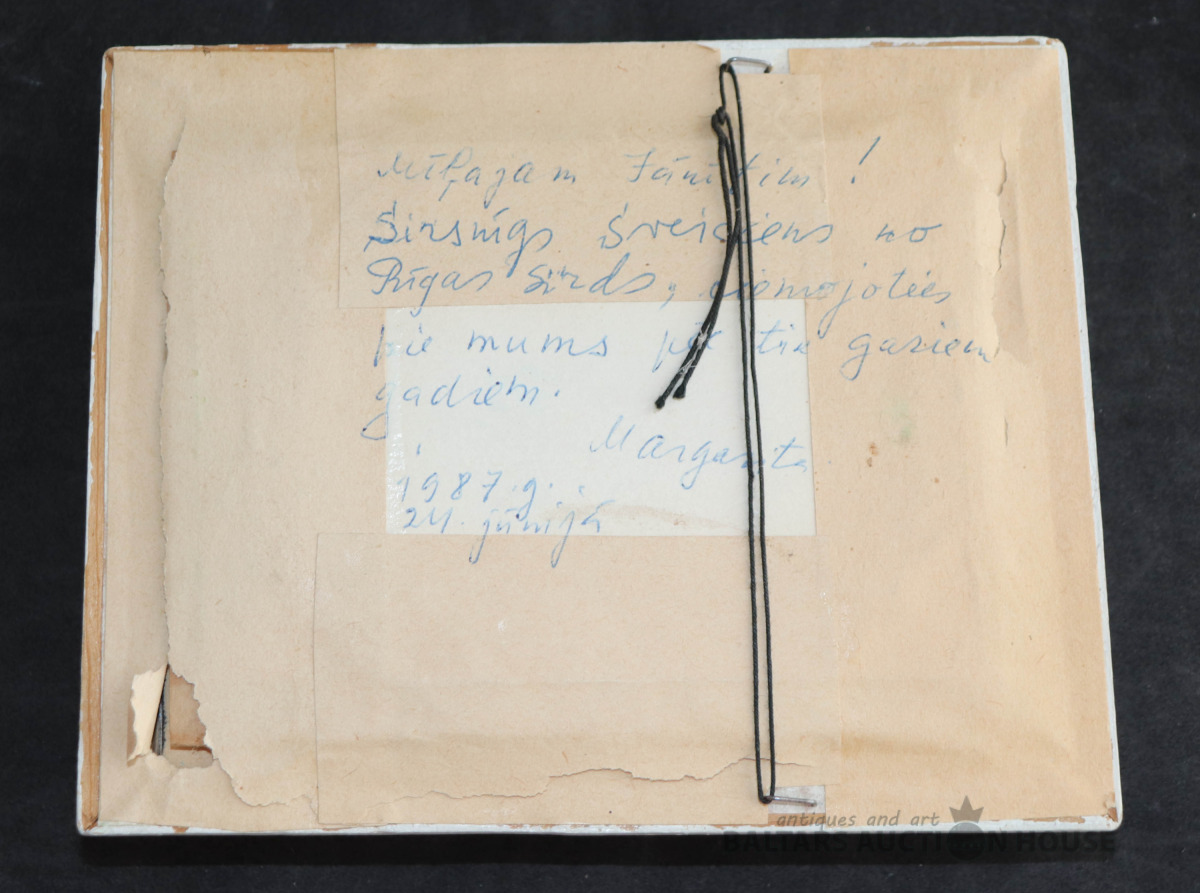 Mīļajam Jānītim!
Sirsnīgs sveiciens no
Rīgas sirds, ciemojoties
pie mums pēc tik gariem
gadiem.
Margarita
1987.g.
24. jūnijā
antiques and art
BALTARS AUCTION HOUSE